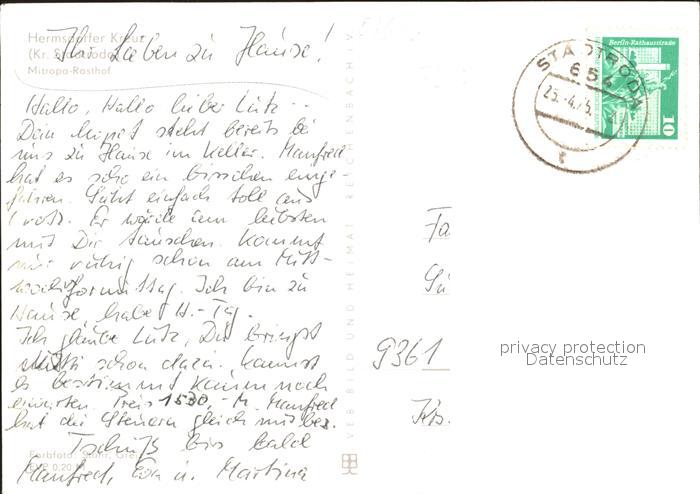 Hermsdorfer Kreuz
(Kr. Stadtroda)
Mitropa-Rasthof
Ihr Lieben zu Hause!
Hallo, Hallo lieber Lutz...
Dein steht bereits bei
uns zu Hause im Keller. Manfred
hat es scho ein bisschen einge-
fahren. Sieht einfach toll aus
(rot). Er würde am liebsten
mit Dir tauschen. Kommt
nur ruhig schon am Mitt-
wochvormittag. Ich bin zu
Hause, habe H.-Tag.
Ich glaube Lutz, Du bringst
schon dazu. Kannst
es bestimmt kaum noch
erwarten. Preis 1530,- M. Manfred
hat die Steuern gleich mit bez.
Tschüß bis bald
Manfred, Eva u. Martina
Farbfoto:
EVP 0,20 M
VEB BILD UND HEIMAT REICHENBACH V
STADTRODA
654
25.-4.75
Berlin-Rathausstraße
10
Fa
9361
Krs.
privacy protection
Datenschutz